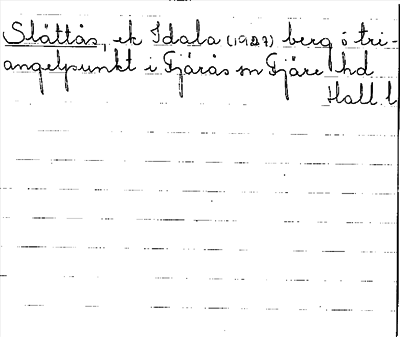 Slättås, ek Idala (1927) berg o tri-
angelpunkt i Fjärås sn Fjäre hd
Hall. l